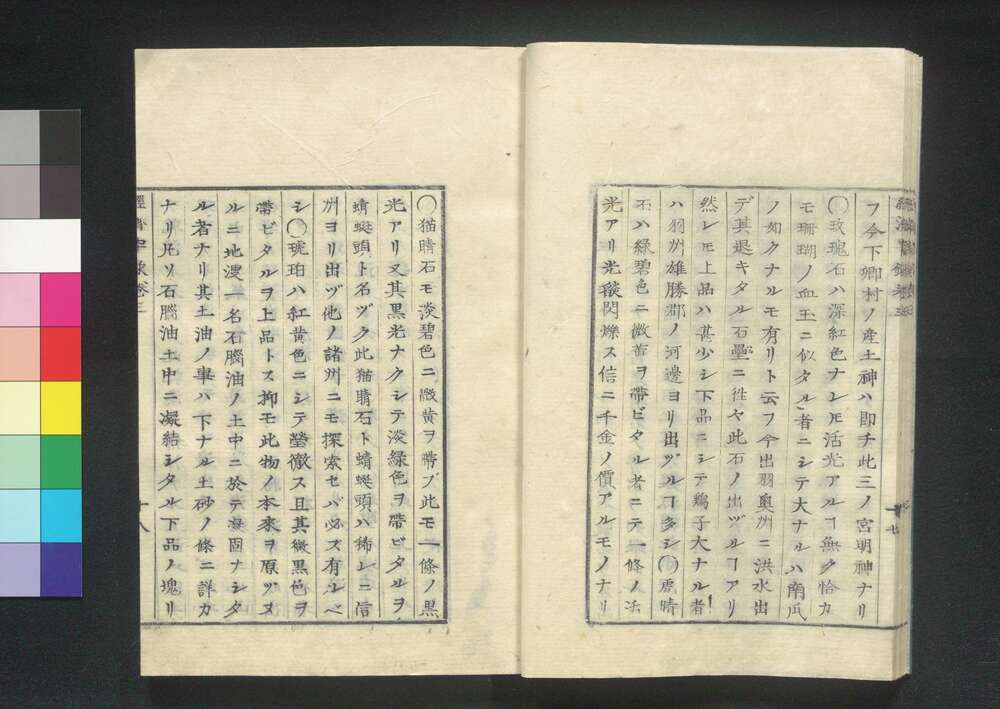 フ今下郷村ノ産土神ハ即チ此三ノ宮明神ナリ
〇玫瑰石ハ深紅色ナレ𪜈活光アルヿ無ク恰カ
モ珊瑚ノ血玉ニ似タル者ニシテ大ナルハ南瓜
ノ如クナルモ有リト云フ今出羽奥州ニ洪水出
デ其退キタル石壘ニ徃々此石ノ出ヅルヿアリ
然レ𪜈上品ハ甚少シ下品ニシテ鶏子大ナル者
ハ羽州雄勝郡ノ河邊ヨリ出ヅルヿ多シ〇虎睛
石ハ緑碧色ニ微黄ヲ帶ビタル者ニテ一條ノ活
光アリ光燄閃爍ス信ニ千金ノ價アルモノナリ
十七
〇猫睛石モ淡碧色ニ微黄ヲ帶ブ此モ一條ノ黒
光アリ又其黒光ナクシテ淡緑色ヲ帶ビタルヲ
蜻蜓頭ト名ヅク此猫睛石ト蜻蜓頭ハ稀レニ信
州ヨリ出ヅ他ノ諸州ニモ探索セバ必ズ有ルベ
シ〇琥珀ハ紅黄色ニシテ瑩徹ス且其微黒色ヲ
帶ビタルヲ上品トス抑モ此物ノ本來ヲ原ヅヌ
ルニ地溲一名石腦油ノ土中ニ於テ凝固ナシタ
ル者ナリ其土油ノ事ハ下ナル土砂ノ條ニ詳カ
ナリ凡ソ石腦油土中ニ凝結シタル下品ノ塊リ
十八